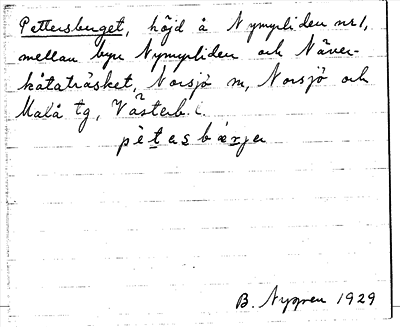 Pettersberget, höjd å Nymyrliden nr 1,
mellan byn Nymyrliden och Näver-
kåtaträsket, Norsjö sn, Norsjö och
Malå tg, Västerb. l.
pètesbærjer
B. Nygren 1929